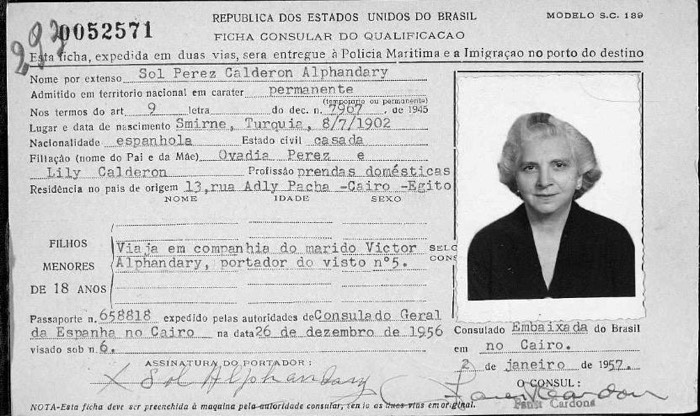 292
0052571
REPUBLICA DOS ESTADOS UNIDOS DO BRASIL
MODELO S.C. 139
FICHA CONSULAR DO QUALIFICACAO
Esta ficha, expedida em duas vias, sera entregue à Policia Maritima e a Imigraçao no porto do destino
Nome por extenso Sol Perez Calderon Alphandary
Admitido em territorio nacional em carater permanente
(temporario ou permanente)
Nos termos do art 9 letra do dec. n. 7967 , de 1945
Lugar e data de nascimento Smirne, Turquia, 8/7/1902
Nacionalidade espanhola Estado civil casada
Filiação (nome do Pai e da Mãe) Ovadia Perez e
Lily Calderon Profissão prendas domésticas
Residência no pais de origem 13,rua Adly Pacha -Cairo -Egito
NOME IDADE SEXO
FILHOS MENORES DE 18 ANOS
Viaja em companhia do marido Victor
Alphandary, portador do visto nº5.
SELO
CONS
Passaporte n. 658818 expedido pelas autoridades de Consulado Geral
da Espanha no Cairo na data 26 de dezembro de 1956
visado sob n. 6.
Consulado Embaixada do Brasil
em no Cairo.
2 de janeiro de 1957.
ASSINATURA DO PORTADOR:
X Sol Alphandary
O CONSUL:
Cardona
NOTA-Esta ficha deve ser preenchida à maquina pela autoridade consular, sendo as duas vias em original.